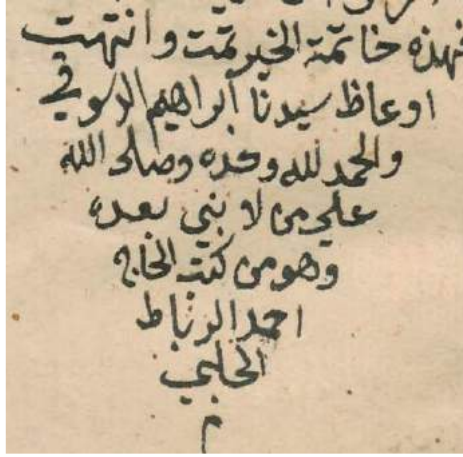 فهذه خاتمة الخير تمت وانتهت
اوعاظ سيدنا ابراهيم الدسوقي
والحمد لله وحده وصلى الله
على من لا نبي بعده
وهو من كتب الحاج
احمد الرباط
الحلبي
م